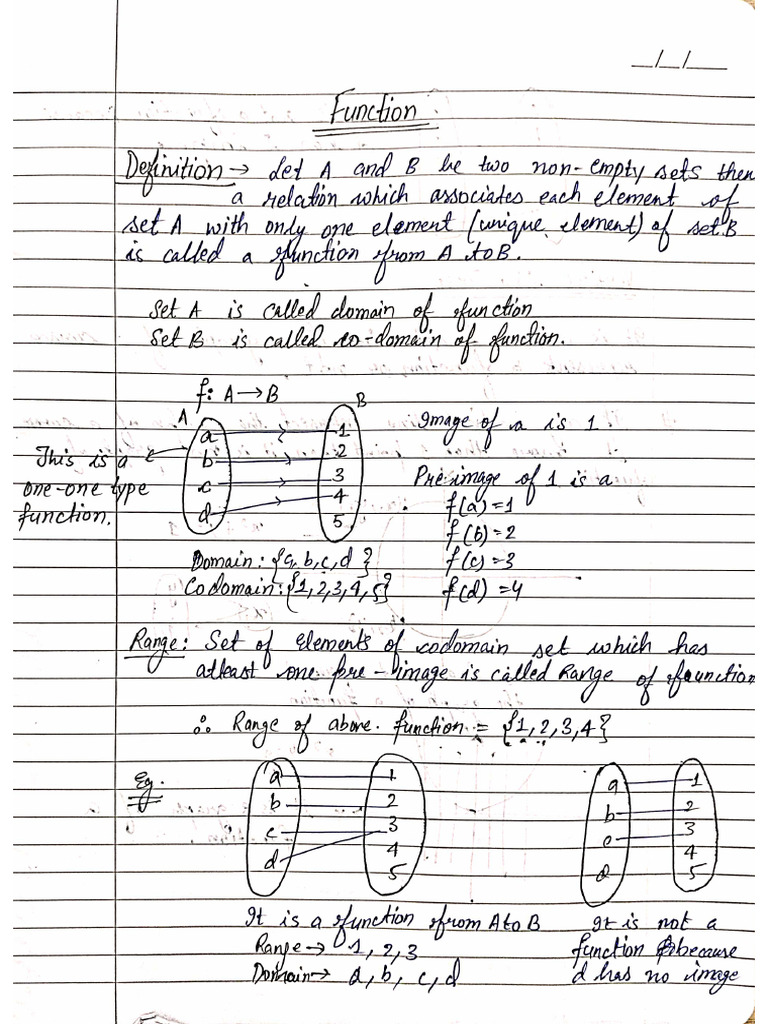 _/_/__
Function
Definition → Let A and B be two non-empty sets then
a relation which associates each element of
set A with only one element (unique element) of set B
is called a function from A to B.
Set A is called domain of function
Set B is called co-domain of function.
f: A → B
A B
a 1
b 2
c 3
d 4
5
This is a
one-one type
function.
Image of a is 1
Pre-image of 1 is a
f(a) = 1
f(b) = 2
f(c) = 3
f(d) = 4
Domain: {a, b, c, d}
Codomain: {1, 2, 3, 4, 5}
Range: Set of elements of codomain set which has
atleast one pre-image is called Range of function
∴ Range of above function = {1, 2, 3, 4}
Eg.
a 1
b 2
c 3
d 4
5
It is a function from A to B
Range → 1, 2, 3
Domain → a, b, c, d
a 1
b 2
c 3
d 4
5
It is not a
function because
d has no image